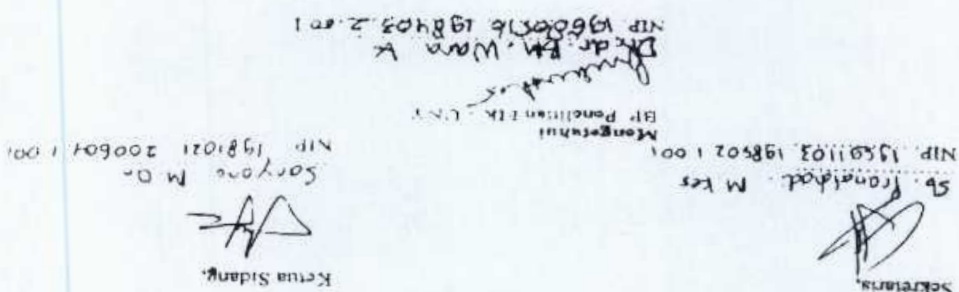 Sekretaris,
Ketua Sidang,
Sb. Pranatahadi. M Kes
NIP. 19591103 198502 1 001
Saryono M Or
NIP 19811021 200604 1 001
Mengetahui
BP Penelitian FIK - UNY
dr. BM. Wara K
NIP. 19580516 198403 2 001